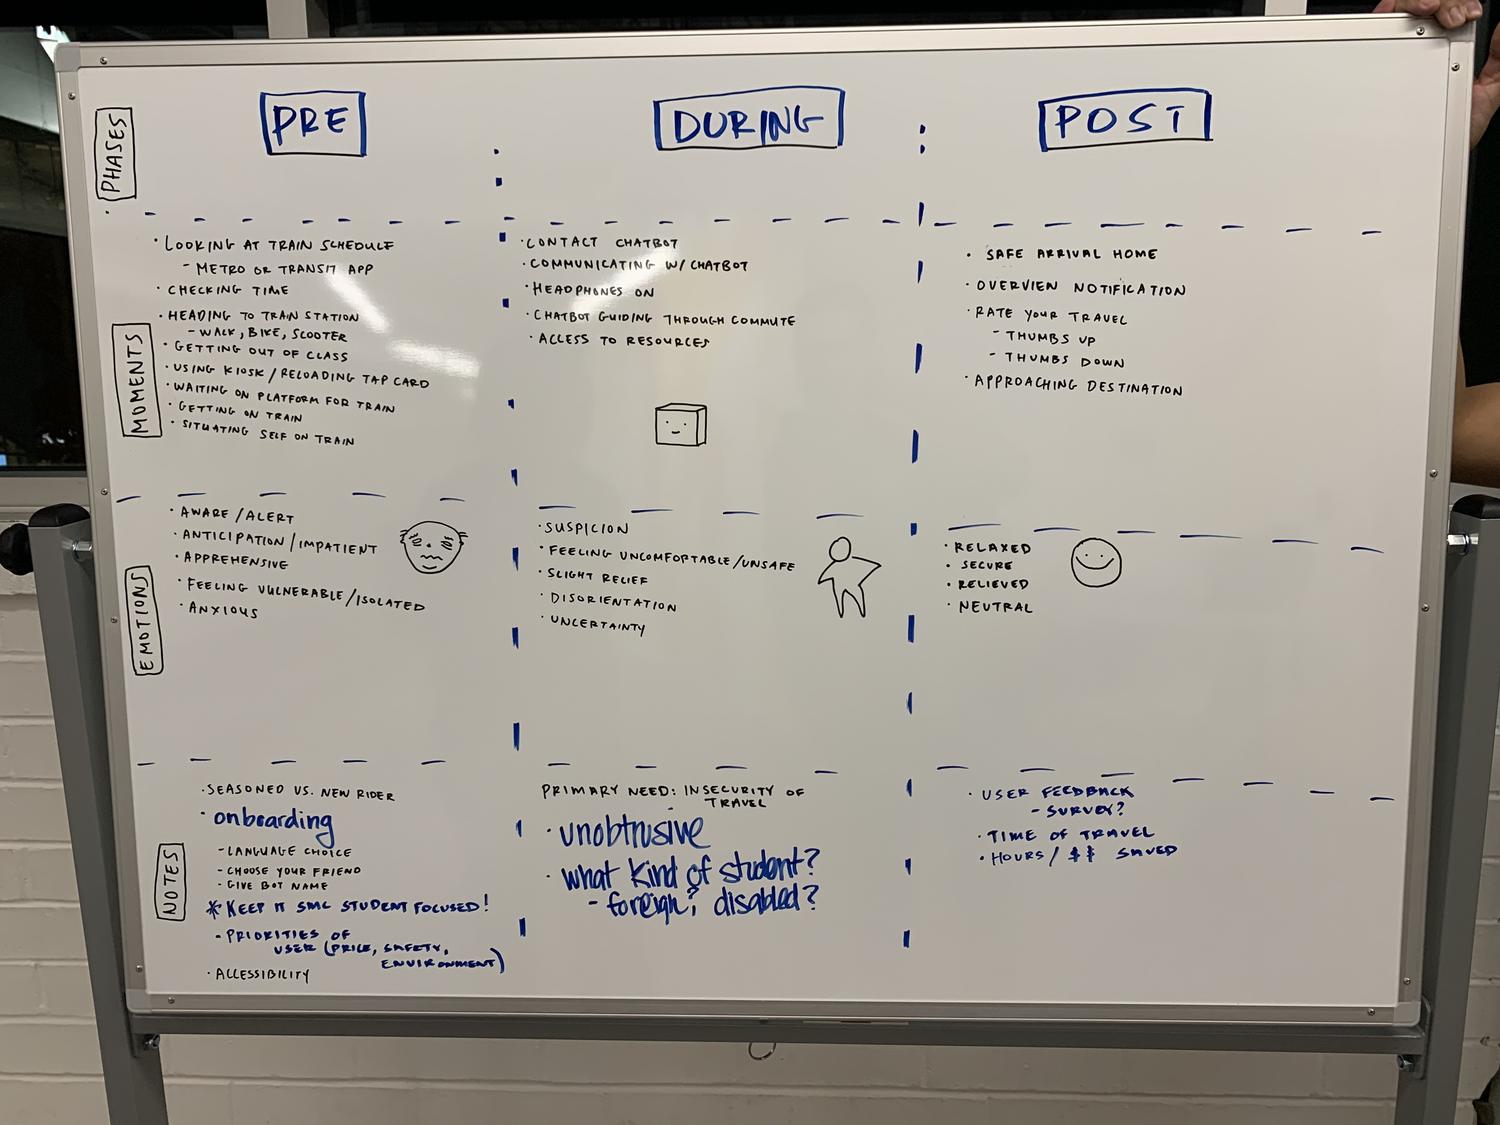 PHASES
PRE
DURING
POST
MOMENTS
· LOOKING AT TRAIN SCHEDULE
- METRO OR TRANSIT APP
· CHECKING TIME
· HEADING TO TRAIN STATION
- WALK, BIKE, SCOOTER
· GETTING OUT OF CLASS
· USING KIOSK / RELOADING TAP CARD
· WAITING ON PLATFORM FOR TRAIN
· GETTING ON TRAIN
· SITUATING SELF ON TRAIN
· CONTACT CHATBOT
· COMMUNICATING W/ CHATBOT
· HEADPHONES ON
· CHATBOT GUIDING THROUGH COMMUTE
· ACCESS TO RESOURCES
· SAFE ARRIVAL HOME
· OVERVIEN NOTIFICATION
· RATE YOUR TRAVEL
- THUMBS UP
- THUMBS DOWN
· APPROACHING DESTINATION
EMOTIONS
· AWARE / ALERT
· ANTICIPATION / IMPATIENT
· APPREHENSIVE
· FEELING VULNERABLE / ISOLATED
· ANXIOUS
· SUSPICION
· FEELING UNCOMFORTABLE / UNSAFE
· SLIGHT RELIEF
· DISORIENTATION
· UNCERTAINTY
· RELAXED
· SECURE
· RELIEVED
· NEUTRAL
NOTES
· SEASONED VS. NEW RIDER
· onboarding
- LANGUAGE CHOICE
- CHOOSE YOUR FRIEND
- GIVE BOT NAME
* KEEP IT SMC STUDENT FOCUSED!
- PRIORITIES OF
USER (PRICE, SAFETY,
ENVIRONMENT)
· ACCESSIBILITY
PRIMARY NEED: INSECURITY OF
TRAVEL
· unobtrusive
· what kind of student?
- foreign? disabled?
· USER FEEDBACK
- SURVEY?
· TIME OF TRAVEL
· HOURS / $$ SAVED